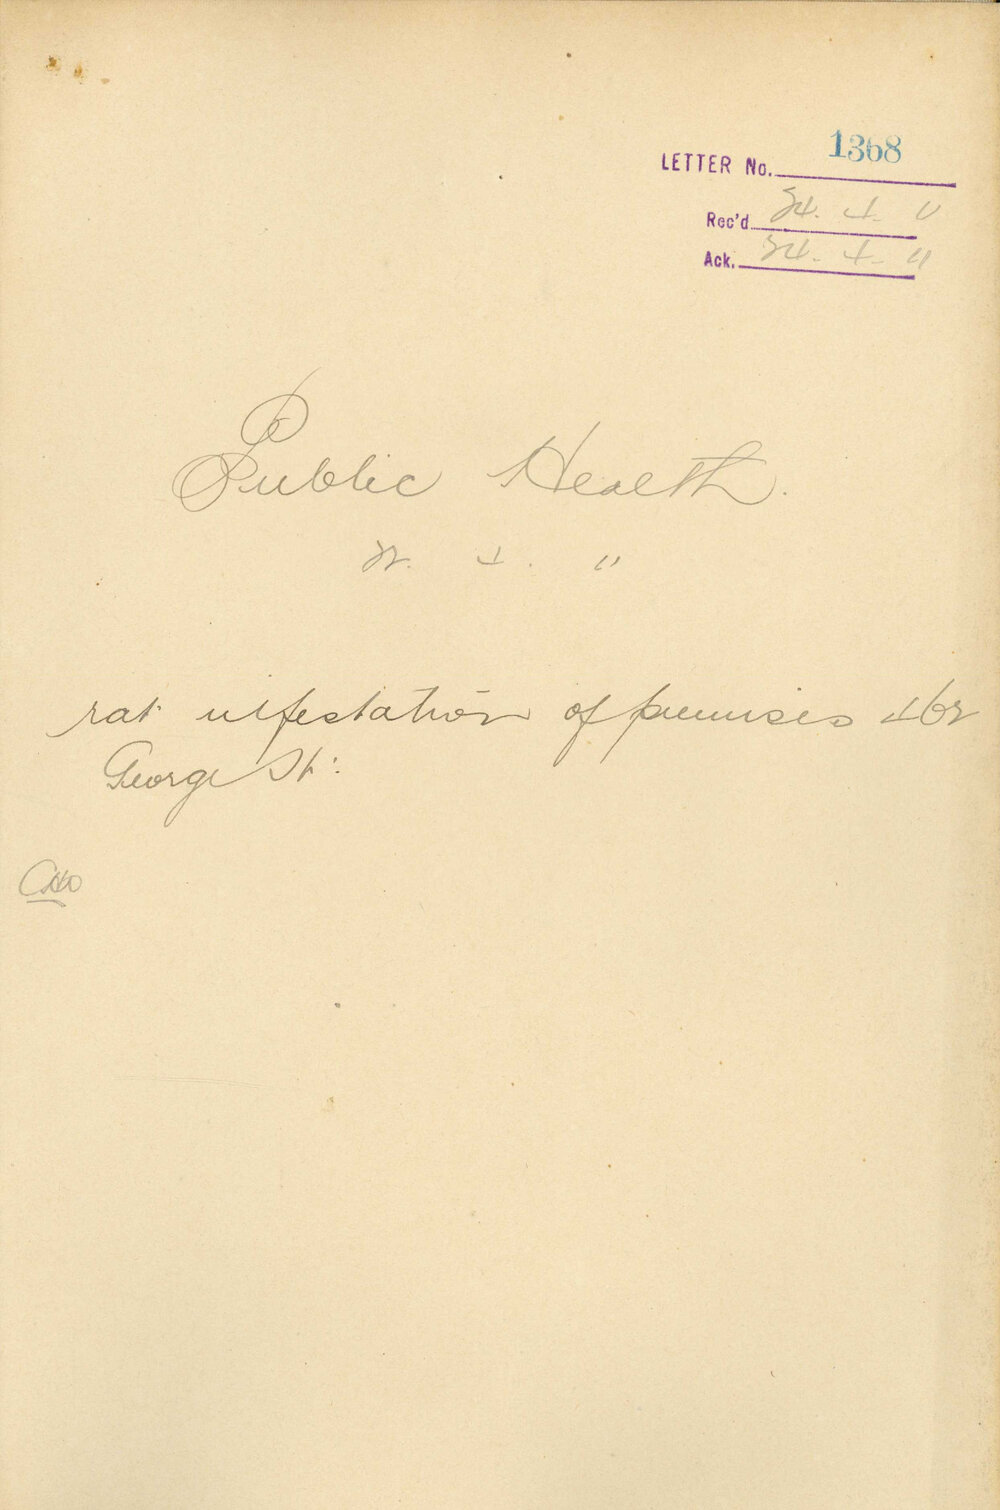 LETTER No. 1368
Rec'd 24. 4. 11
Ack. 24. 4. 11
Public Health.
4. 11
rat infestation of premises 462
George St.
CHO